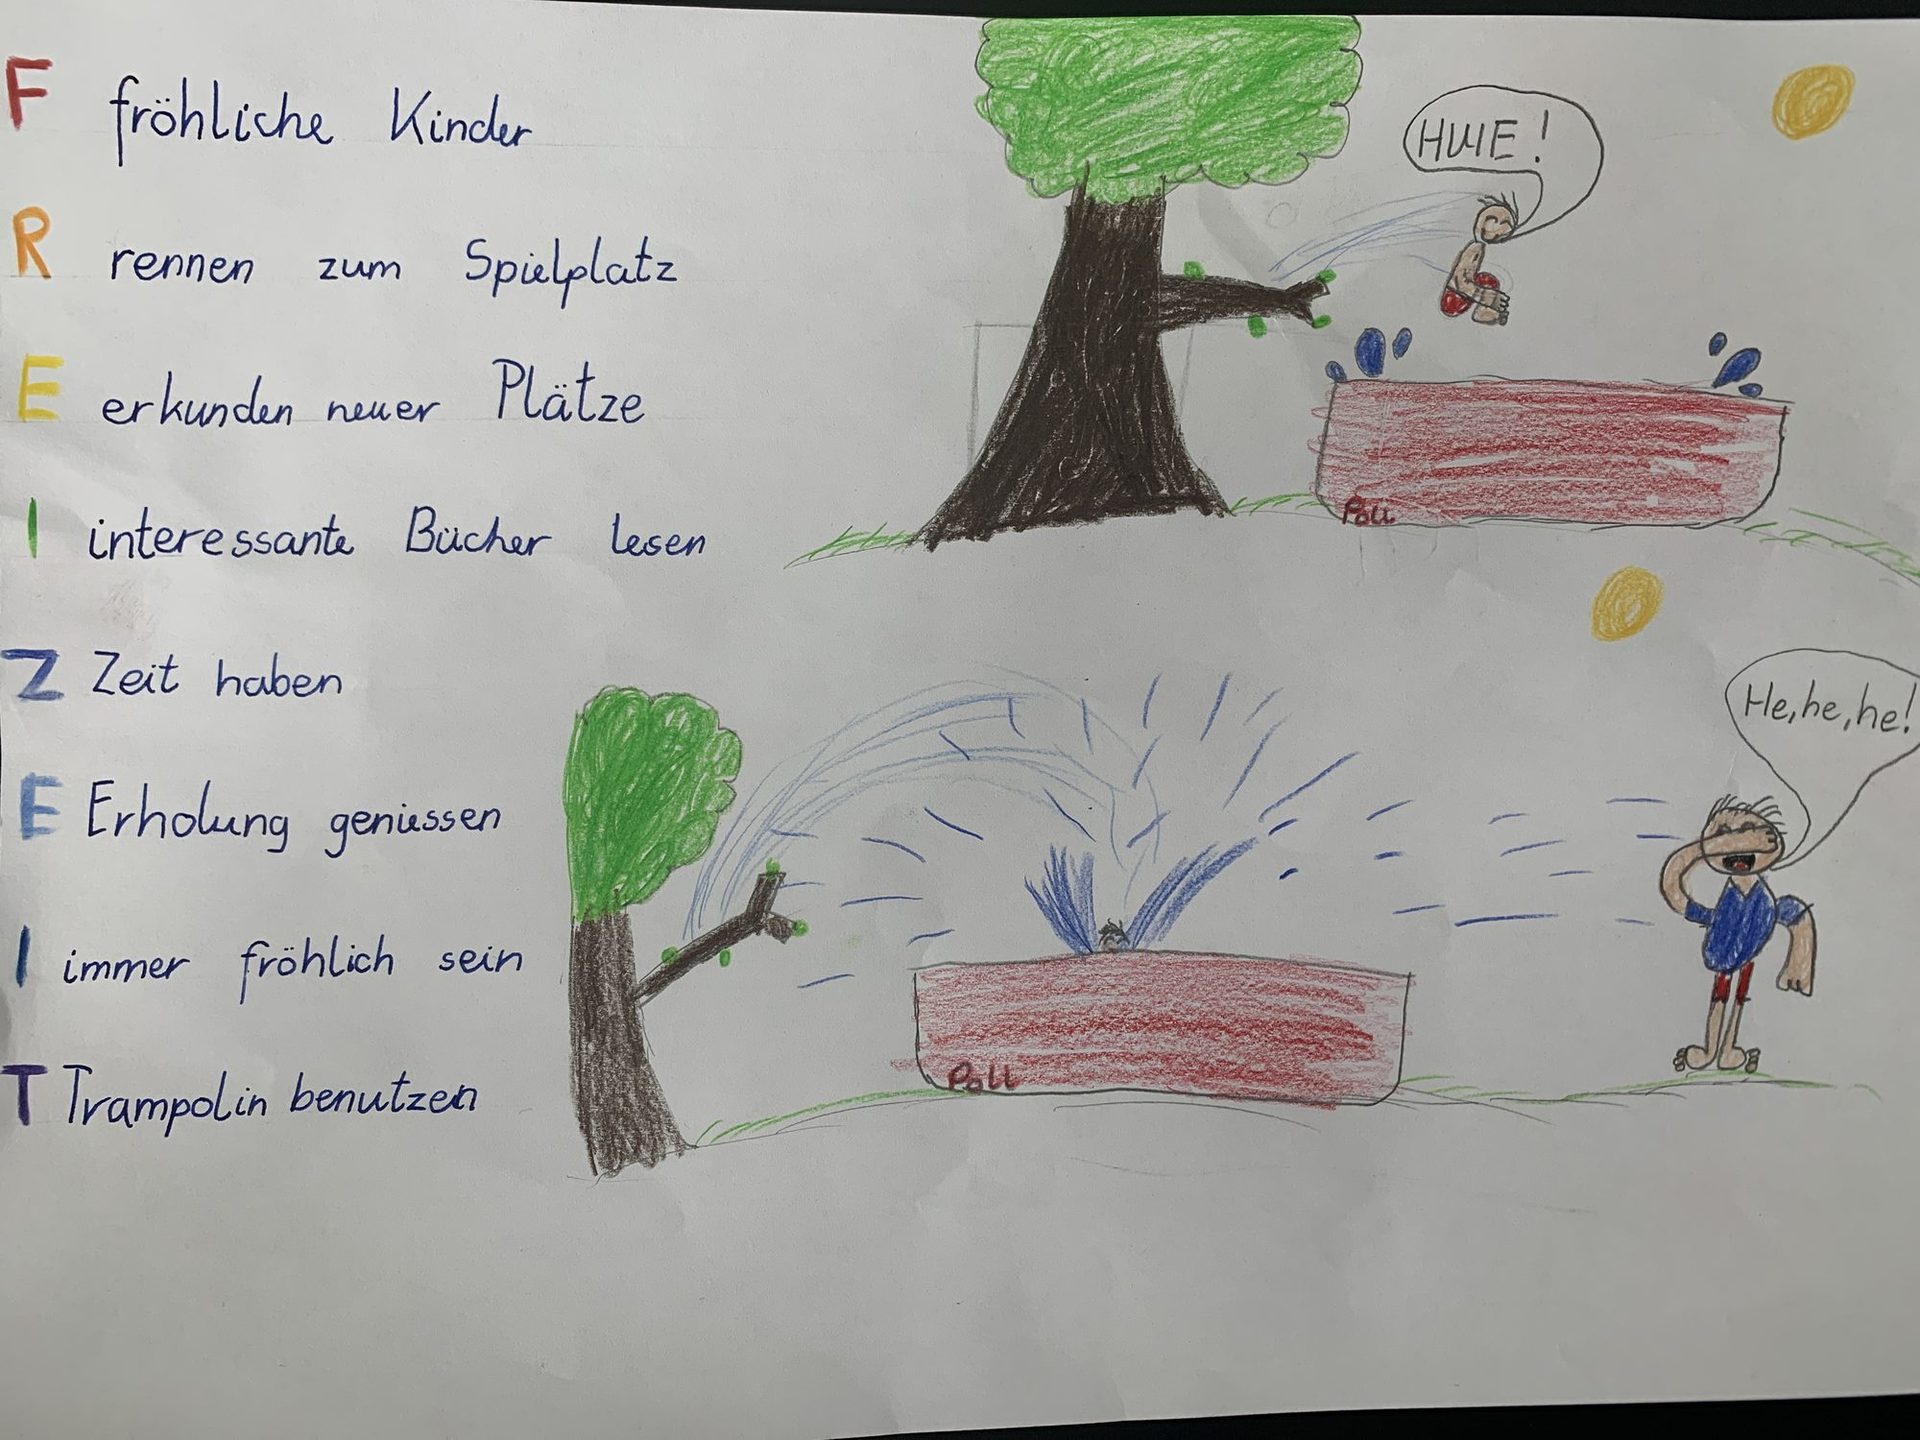 F fröhliche Kinder
R rennen zum Spielplatz
E erkunden neuer Plätze
I interessante Bücher lesen
Z Zeit haben
E Erholung geniessen
I immer fröhlich sein
T Trampolin benutzen
HUIE!
He, he, he!